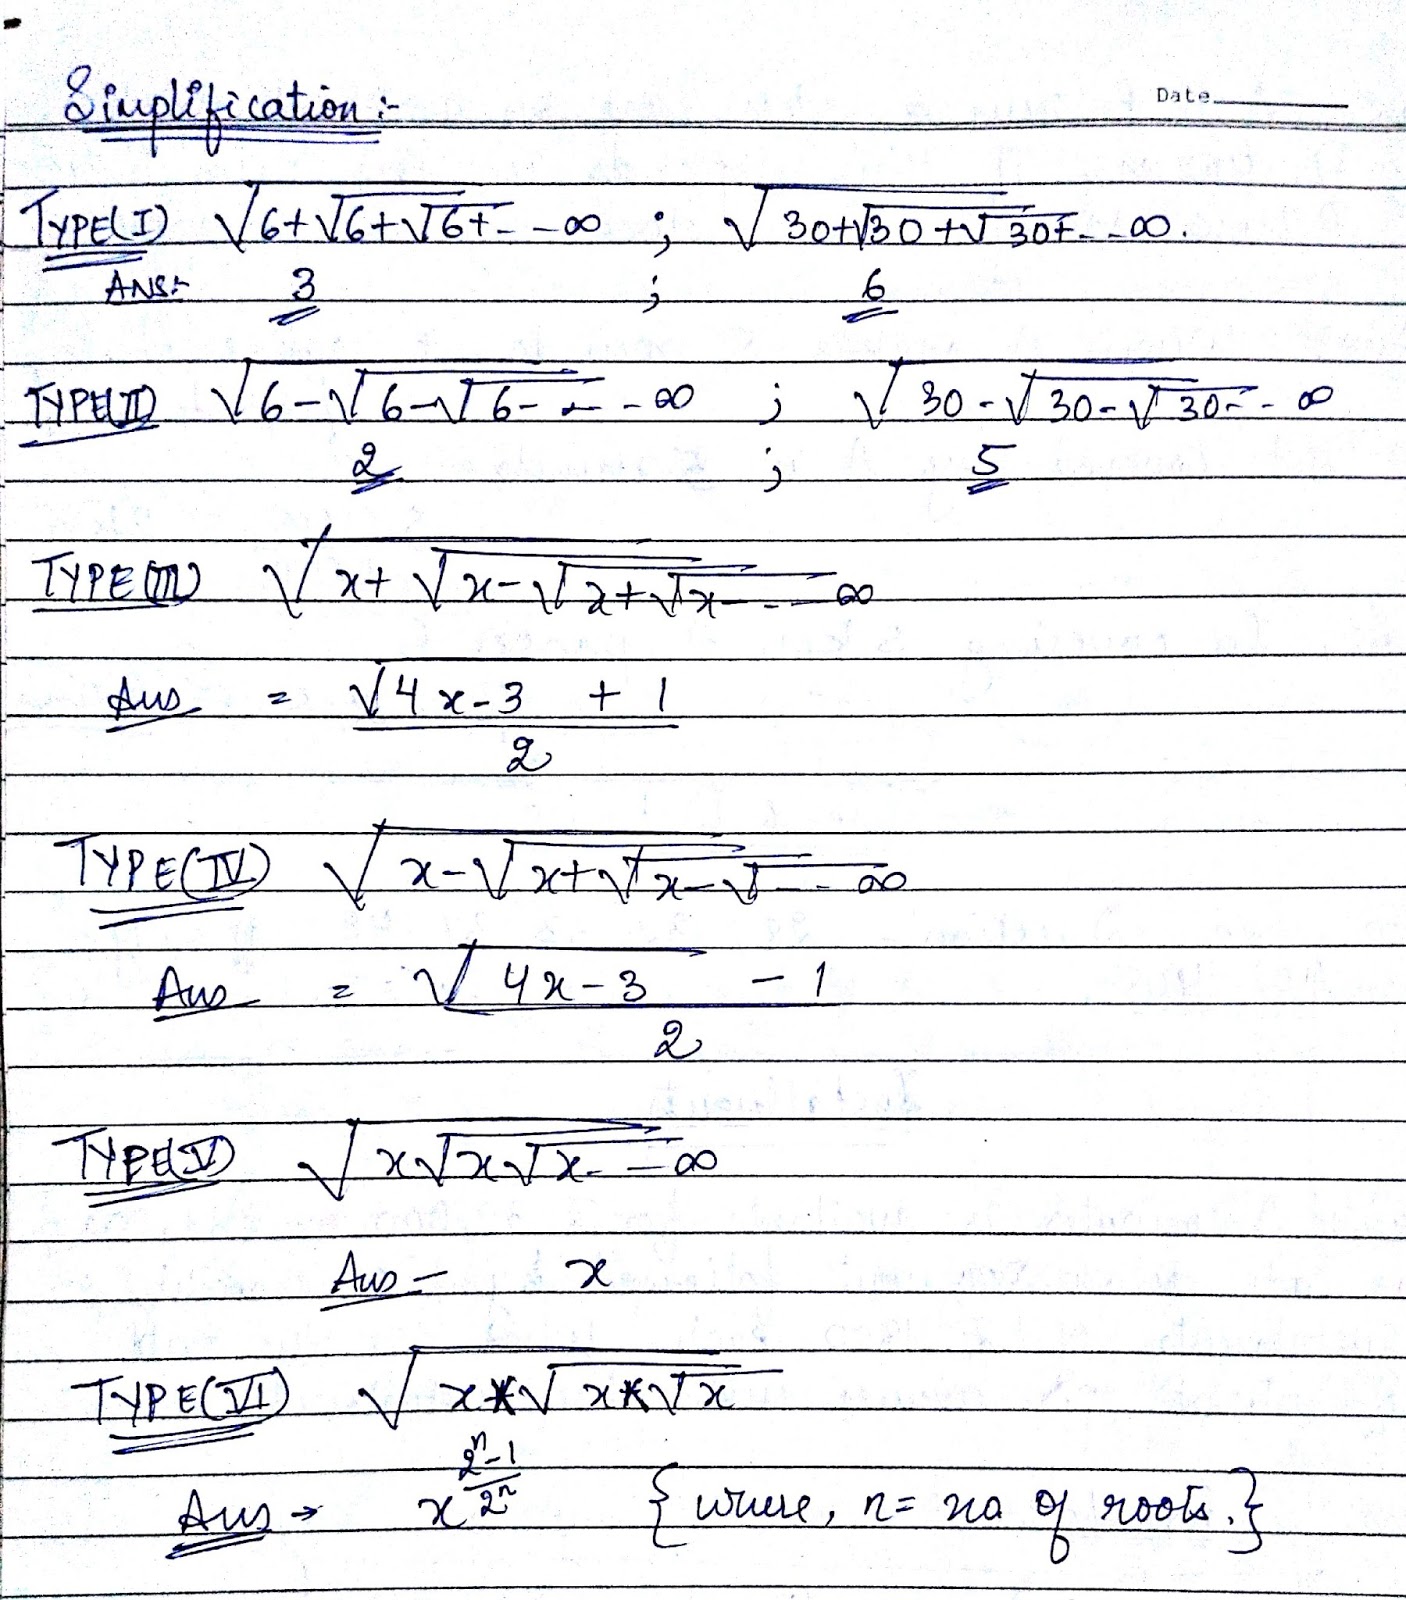 Simplification :-
Date
TYPE(I) √6+√6+√6+- -∞ ; √30+√30+√30+- -∞.
ANS:- 3 ; 6
TYPE(II) √6-√6-√6- - -∞ ; √30-√30-√30- - ∞
2 ; 5
TYPE(III) √x+√x-√x+√x- - -∞
Ans = √4x-3 + 1
2
TYPE(IV) √x-√x+√x-√- - ∞
Ans = √4x-3 - 1
2
TYPE(V) √x√x√x- -∞
Ans - x
TYPE(VI) √x*√x*√x
Ans → x^(2^n-1/2^n) {where, n= no of roots.}